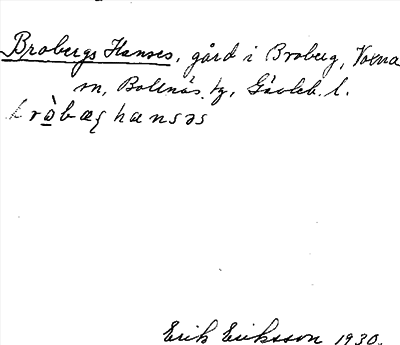 Brobergs Hanses, gård i Broberg, Voxna
sn, Bollnäs tg, Gävleb. l.
bròbæg hansəs
Erik Eriksson 1930.